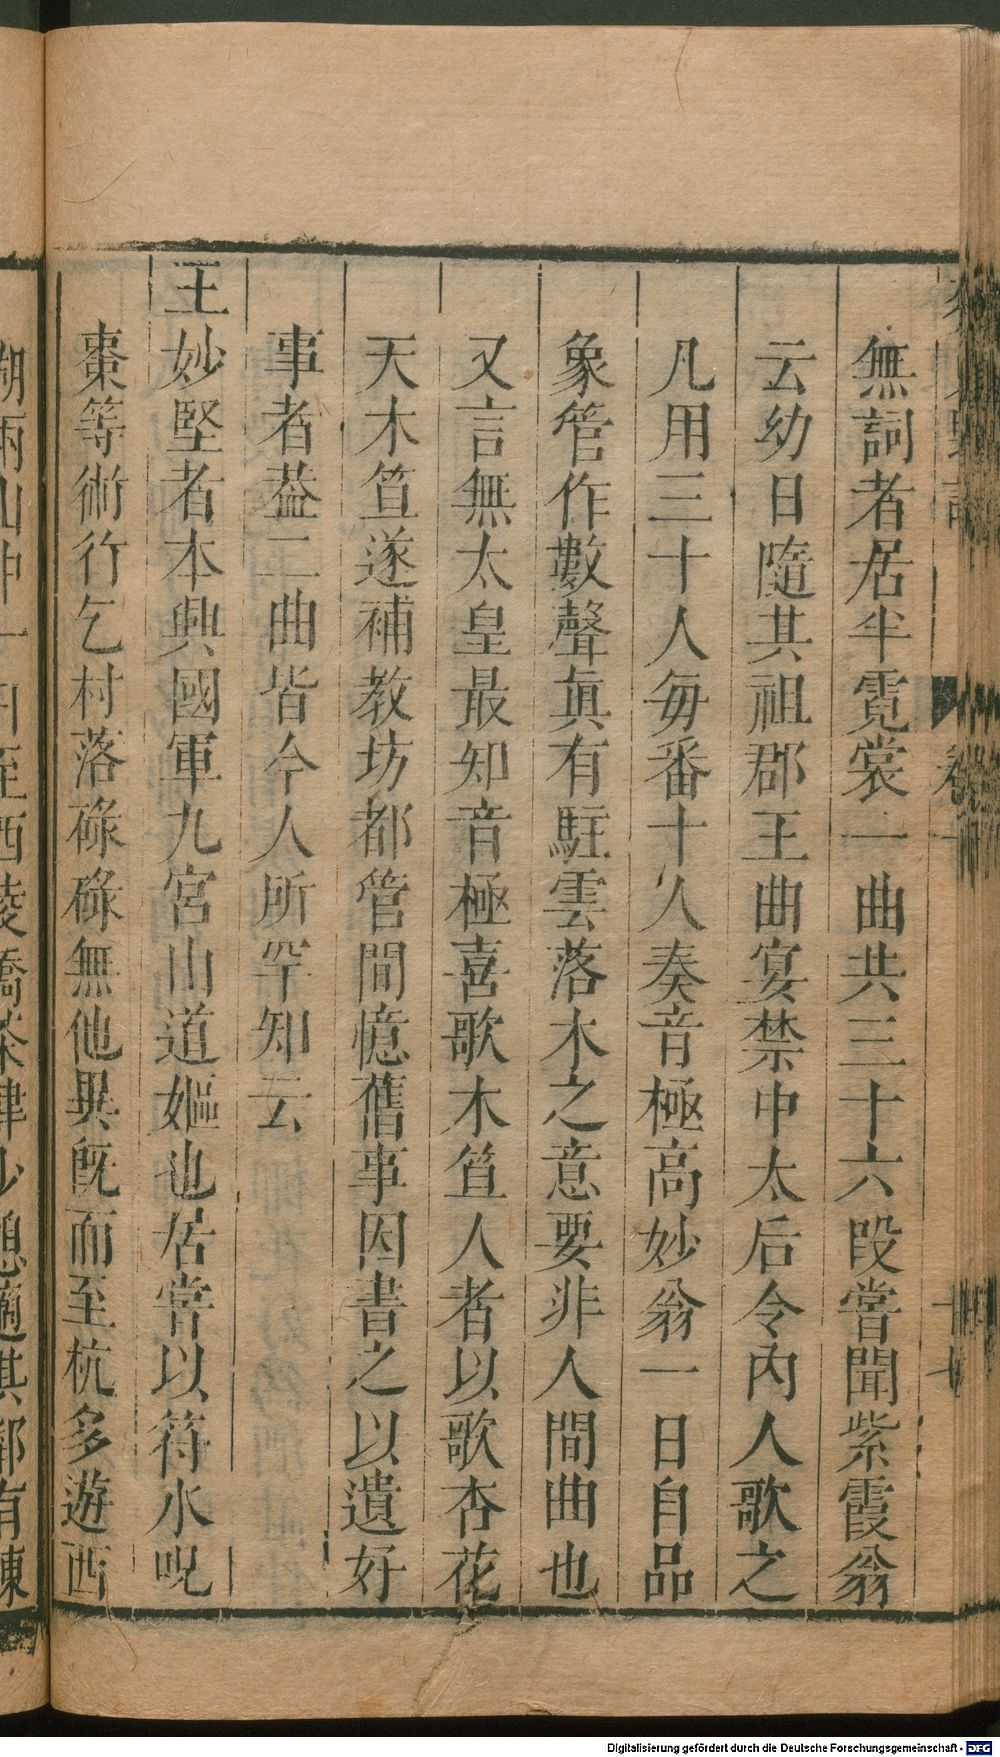 無詞者居半霓裳一曲共三十六段嘗聞紫霞翁
云幼日隨其祖郡王曲宴禁中太后令內人歌之
凡用三十人每番十人奏音極高妙翁一日自品
象管作數聲眞有駐雲落木之意要非人間曲也
又言無太皇最知音極喜歌木笪人者以歌杏花
天木笪遂補教坊都管間憶舊事因書之以遺好
事者葢二曲皆今人所罕知云
王妙堅者本興國軍九宮山道嫗也居常以符水呪
棗等術行乞村落碌碌無他異旣而至杭多遊西
湖兩山中一日至西陵橋茶肆少憩適其鄰有陳
Digitalisierung gefördert durch die Deutsche Forschungsgemeinschaft - DFG